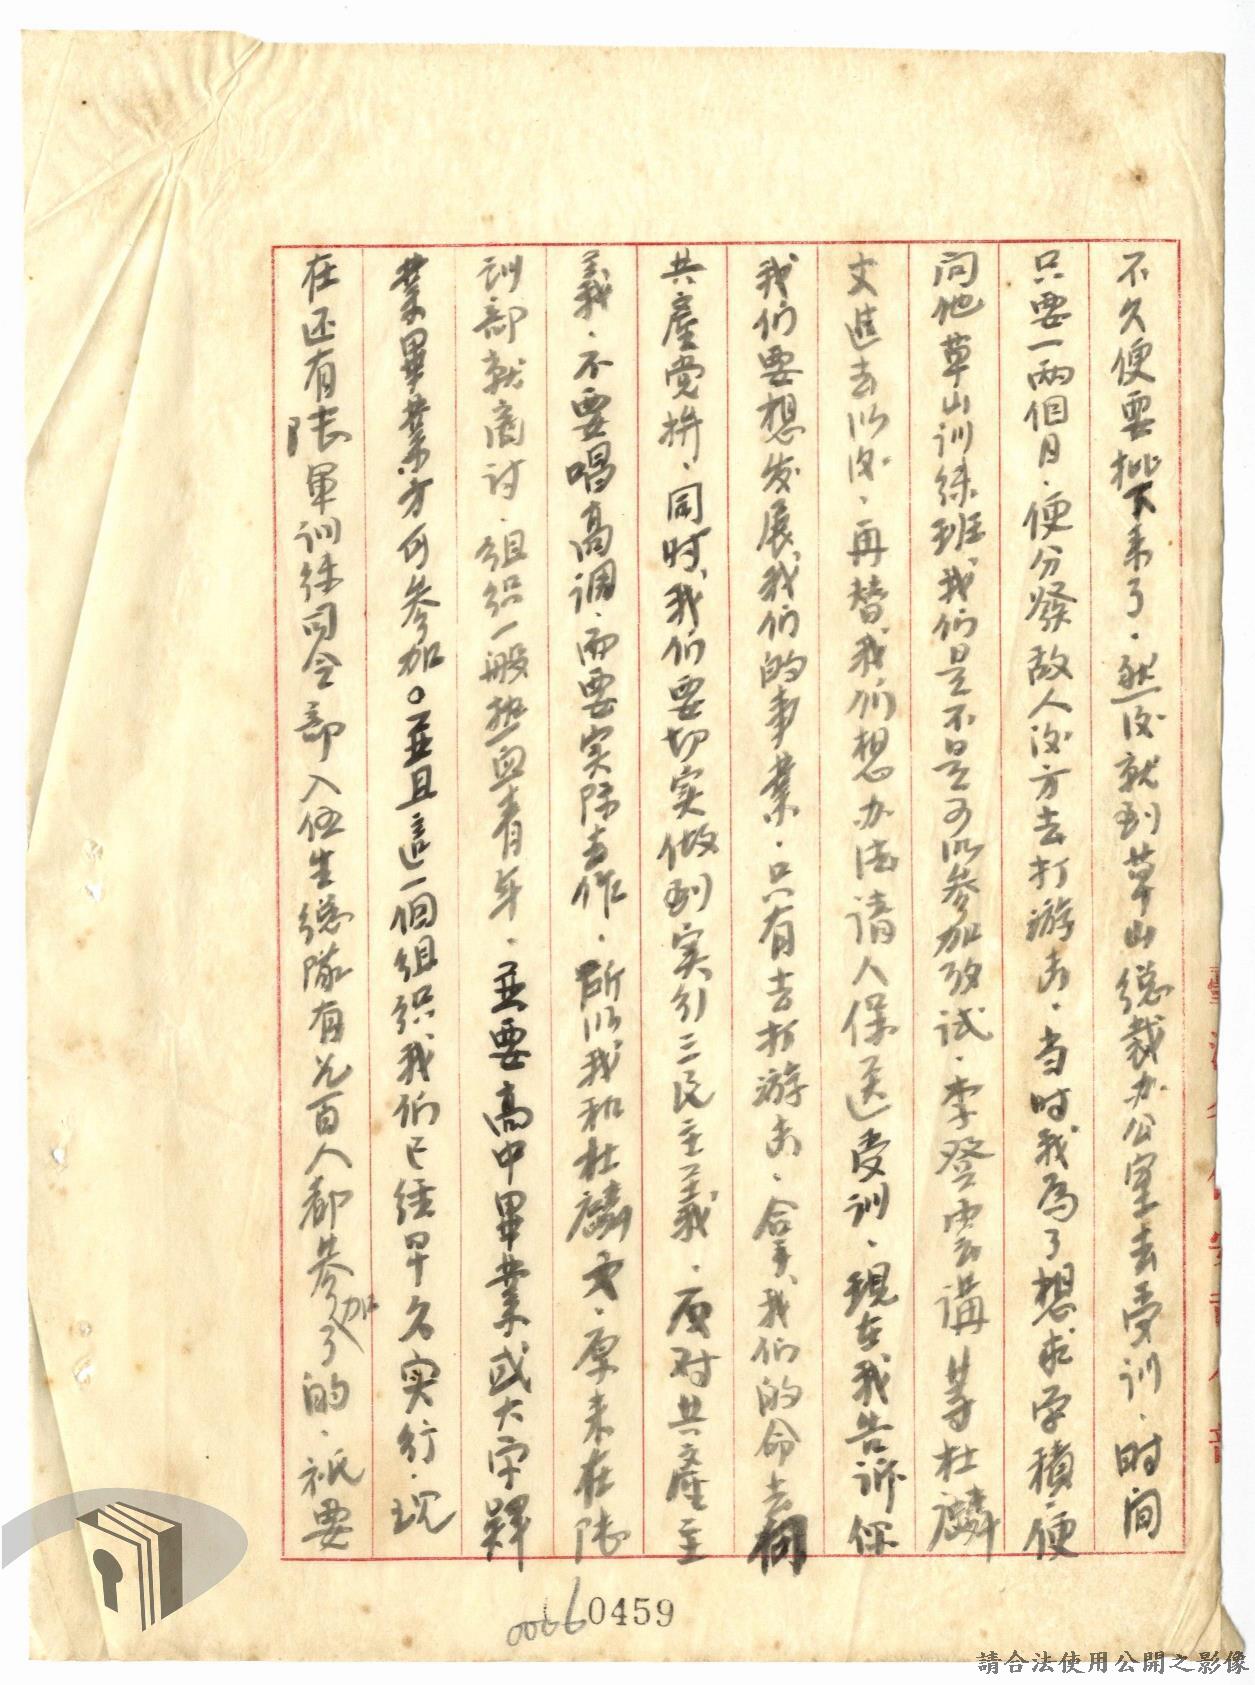 不久便要批下来了．然没就到草山總裁办公室去受训．时间
只要一兩個月．便分發敌人没方去打游击．当时我為了想求学積．便
问他草山训练班．我们是不是可以参加攷试．李登雲講等杜麟
文進去以没．再替我们想办法請人保送受训．現在我告訴你
我们要想发展我们的事業．只有去打游击．合拿我们的命去同
共產党拚．同时．我们要切实做到实行三民主義．反对共產主
義．不要唱高调．而要实际去作．所以我和杜麟文．原来在陆
训部就商讨．组织一般热血青年．並要高中畢業或大学肄
業畢業方可参加。並且這一個组织我们已經早久实行．現
在还有陆軍训练司令部入伍生總隊有九百人都参加了的．祇要
00660459
請合法使用公開之影像